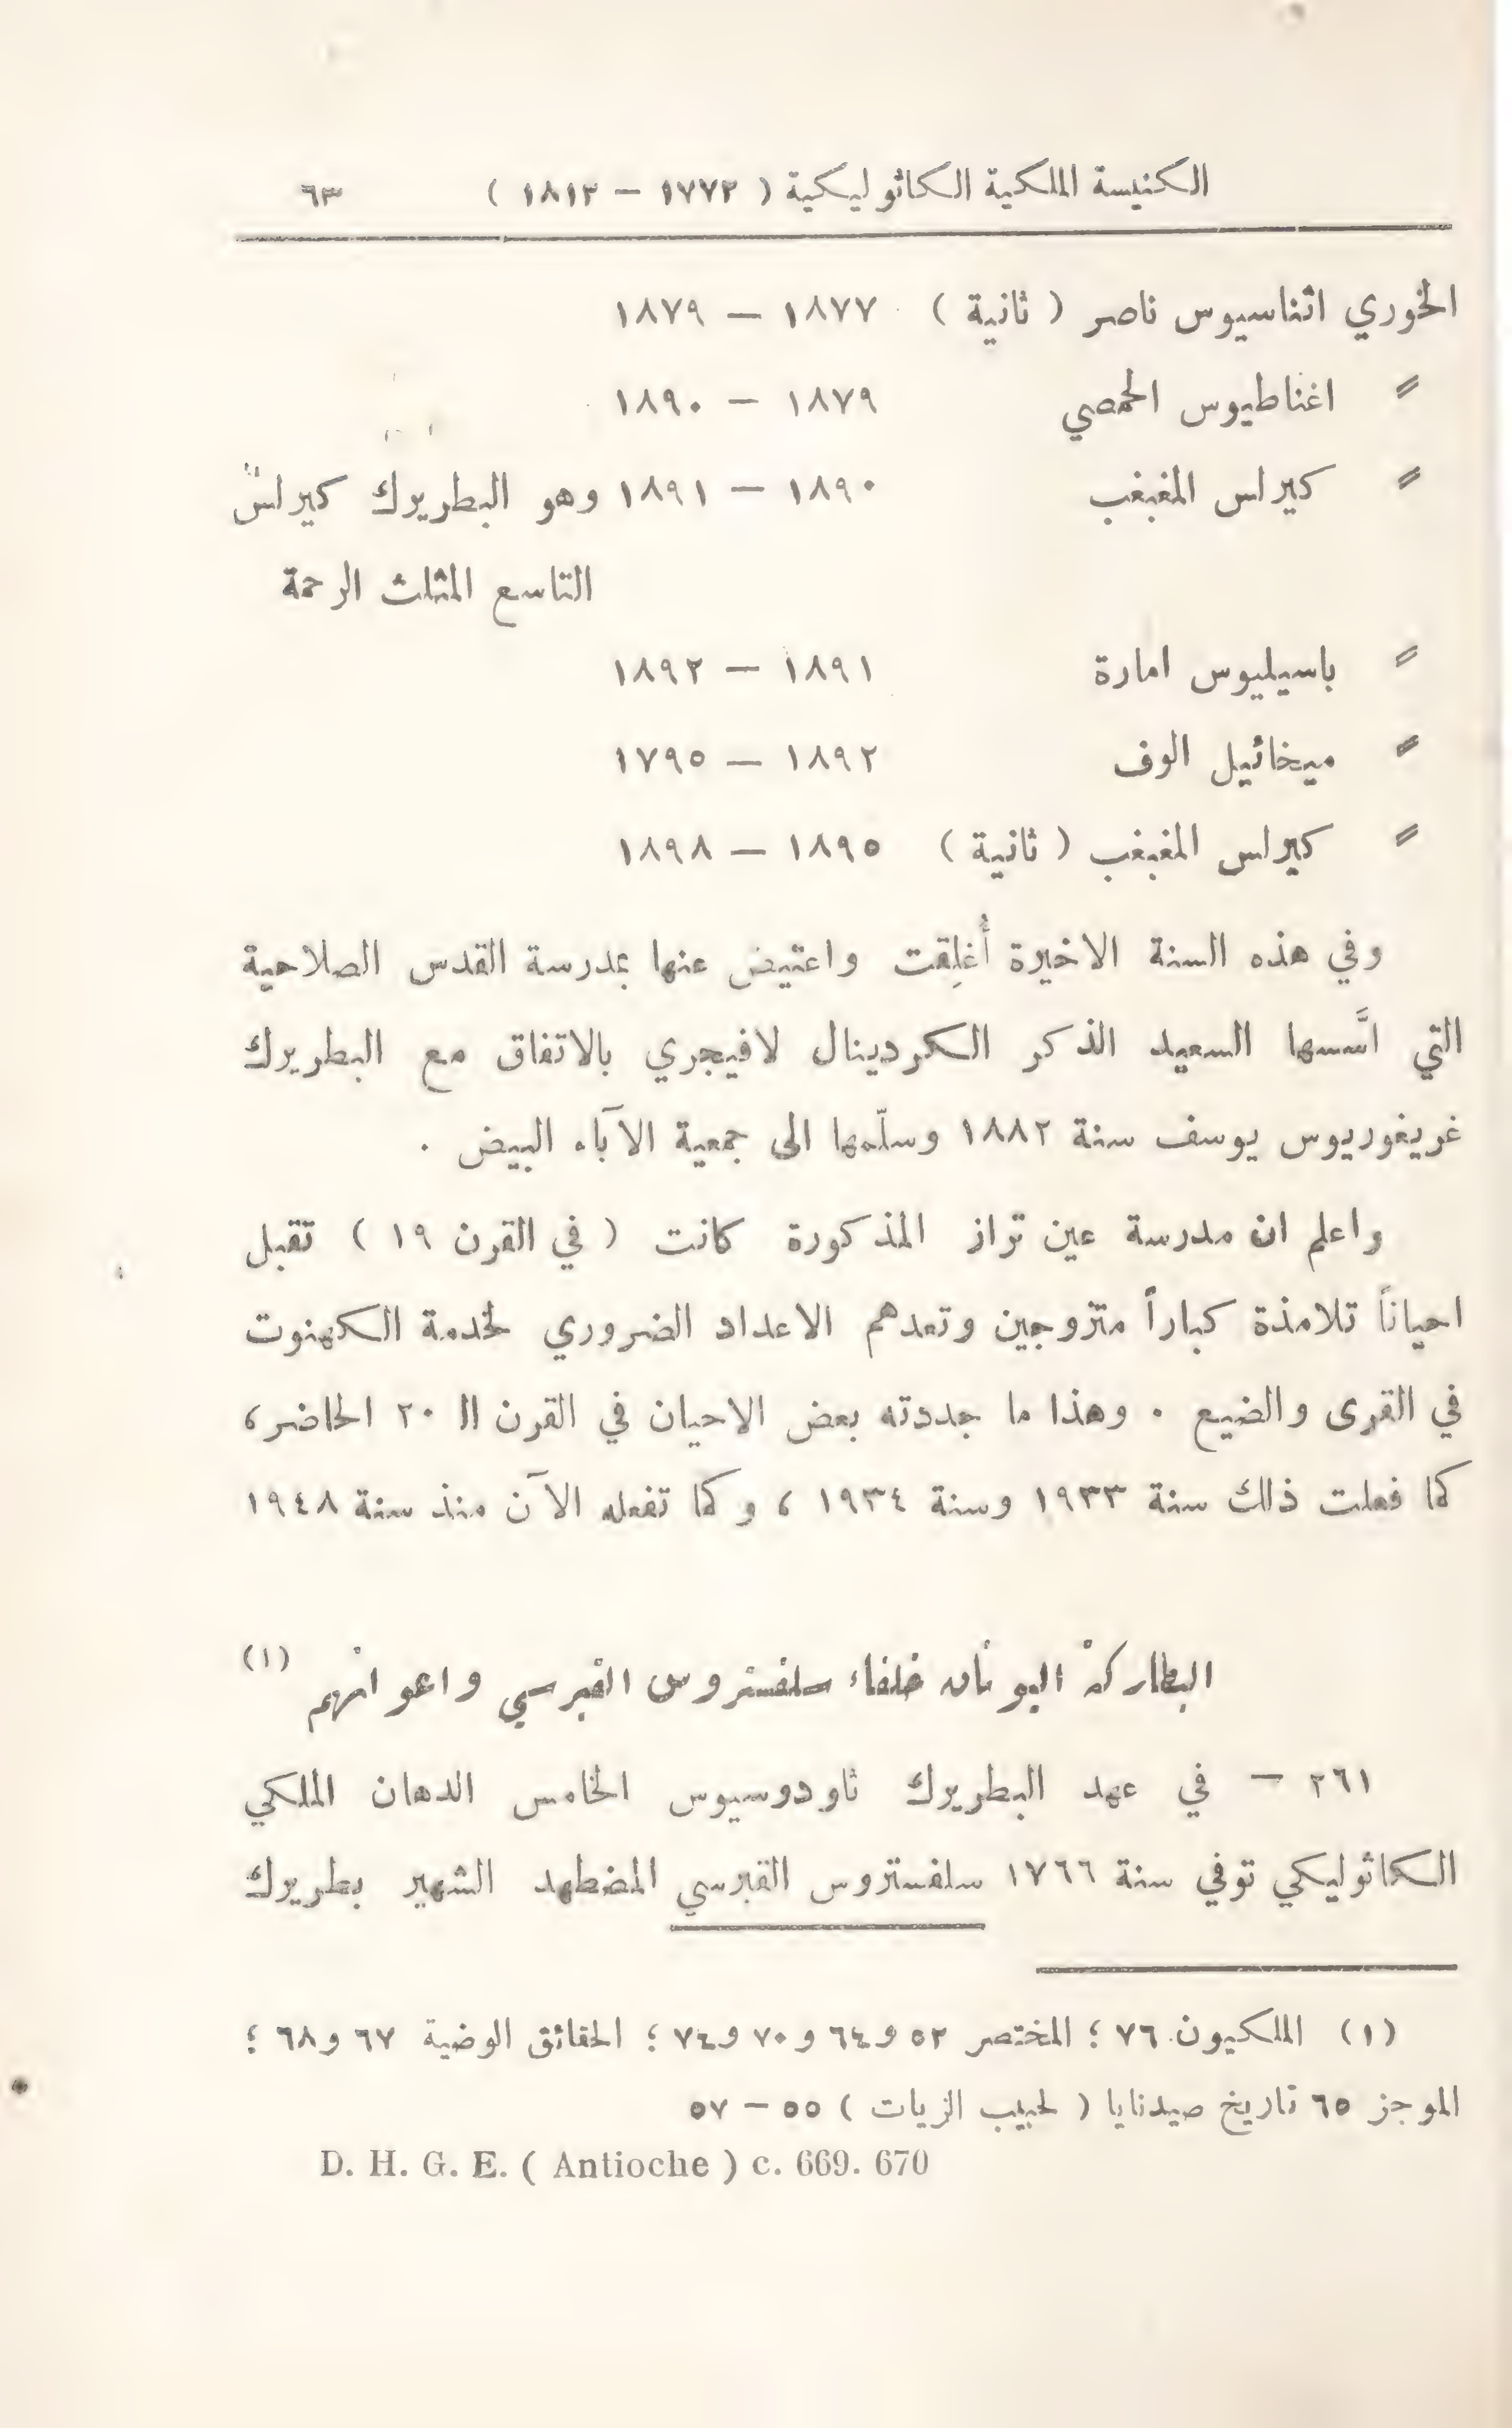 الكنيسة الملكية الكاثوليكية ( ١٧٧٢ — ١٨١٢ ) ٦٣
الخوري اثناسيوس ناصر ( ثانية ) ١٨٧٧ — ١٨٧٩
〃 اغناطيوس الحمصي ١٨٧٩ — ١٨٩٠
〃 كيرلس المغبغب ١٨٩٠ — ١٨٩١ وهو البطريرك كيرلس
التاسع المثلث الرحمة
〃 باسيليوس امارة ١٨٩١ — ١٨٩٢
〃 ميخائيل الوف ١٨٩٢ — ١٧٩٥
〃 كيرلس المغبغب ( ثانية ) ١٨٩٥ — ١٨٩٨
وفي هذه السنة الاخيرة أُغلِقت واعتيض عنها بمدرسة القدس الصلاحية
التي اسَّسها السعيد الذكر الكردينال لافيجري بالاتفاق مع البطريرك
غريغوريوس يوسف سنة ١٨٨٢ وسلّمها الى جمعية الآباء البيض .
واعلم ان مدرسة عين تراز المذكورة كانت ( في القرن ١٩ ) تقبل
احياناً تلامذة كباراً متزوجين وتعدهم الاعداد الضروري لخدمة الكهنوت
في القرى والضيع . وهذا ما جددته بعض الاحيان في القرن الـ ٢٠ الحاضر،
كما فعلت ذلك سنة ١٩٣٣ وسنة ١٩٣٤ ، وكما تفعله الآن منذ سنة ١٩٤٨
البطاركة اليونان خلفاء سلفستروس القبرسي واعوانهم (١)
٢٦١ — في عهد البطريرك ثاودوسيوس الخامس الدهان الملكي
الكاثوليكي توفي سنة ١٧٦٦ سلفستروس القبرسي المضطهد الشهير بطريرك
(١) الملكيون ٧٦ ؛ المختصر ٥٢ و٦٤ و٧٠ و٧٤ ؛ الحقائق الوضية ٦٧ و٦٨ ؛
الموجز ٦٥ تاريخ صيدنايا ( لحبيب الزيات ) ٥٥ — ٥٧
D. H. G. E. ( Antioche ) c. 669. 670